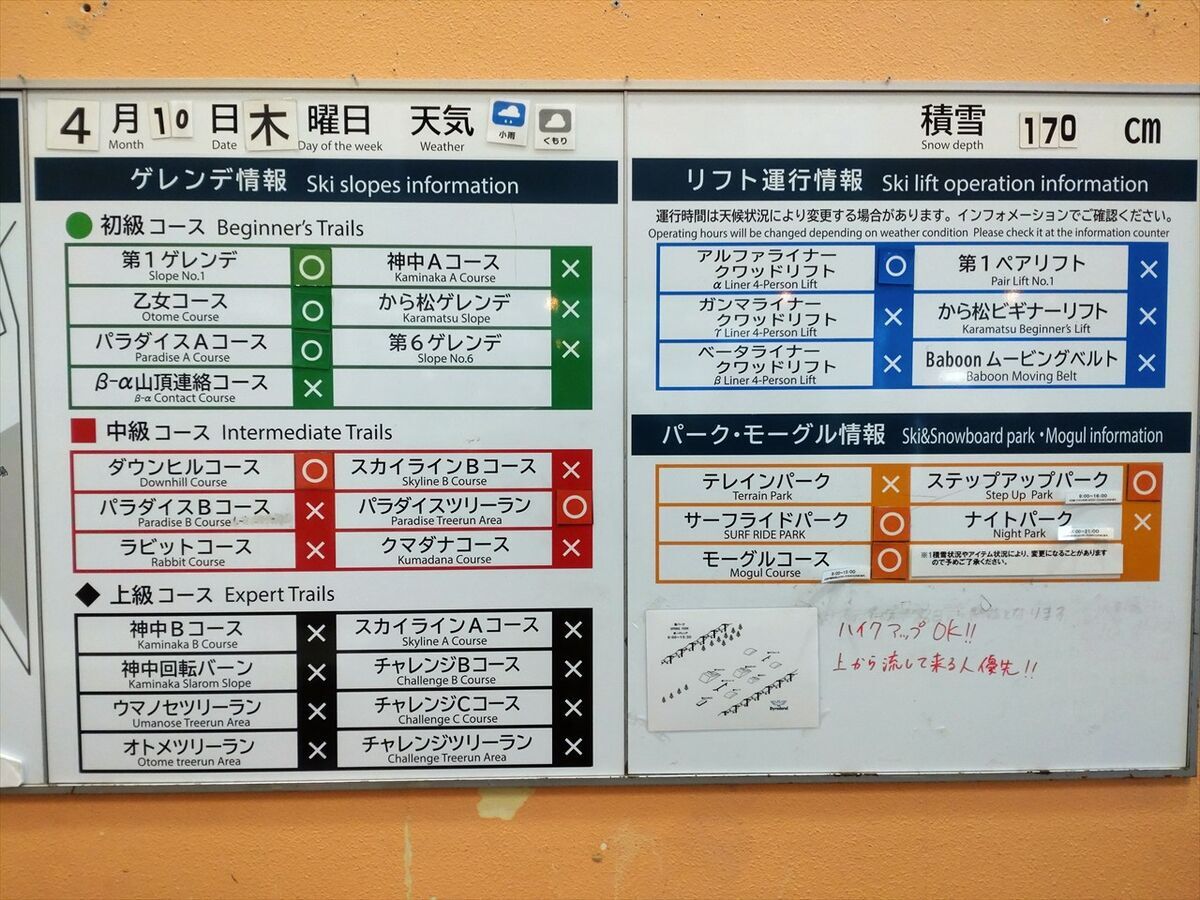 4 月 10 日 木 曜日 天気 小雨 くもり
Month Date Day of the week Weather
ゲレンデ情報 Ski slopes information
初級コース Beginner's Trails
第1ゲレンデ ○ 神中Aコース ×
Slope No.1 Kaminaka A Course
乙女コース ○ から松ゲレンデ ×
Otome Course Karamatsu Slope
パラダイスAコース ○ 第6ゲレンデ ×
Paradise A Course Slope No.6
β-α山頂連絡コース ×
β-α Contact Course
中級コース Intermediate Trails
ダウンヒルコース ○ スカイラインBコース ×
Downhill Course Skyline B Course
パラダイスBコース × パラダイスツリーラン ○
Paradise B Course Paradise Treerun Area
ラビットコース × クマダナコース ×
Rabbit Course Kumadana Course
上級コース Expert Trails
神中Bコース × スカイラインAコース ×
Kaminaka B Course Skyline A Course
神中回転バーン × チャレンジBコース ×
Kaminaka Slarom Slope Challenge B Course
ウマノセツリーラン × チャレンジCコース ×
Umanose Treerun Area Challenge C Course
オトメツリーラン × チャレンジツリーラン ×
Otome treerun Area Challenge Treerun Area
積雪 170 cm
Snow depth
リフト運行情報 Ski lift operation information
運行時間は天候状況により変更する場合があります。インフォメーションでご確認ください。
Operating hours will be changed depending on weather condition Please check it at the information counter
アルファライナー
クワッドリフト ○ 第1ペアリフト ×
α Liner 4-Person Lift Pair Lift No.1
ガンマライナー
クワッドリフト × から松ビギナーリフト ×
γ Liner 4-Person Lift Karamatsu Beginner's Lift
ベータライナー
クワッドリフト × Baboon ムービングベルト ×
β Liner 4-Person Lift Baboon Moving Belt
パーク・モーグル情報 Ski&Snowboard park・Mogul information
テレインパーク × ステップアップパーク ○
Terrain Park Step Up Park
サーフライドパーク ○ ナイトパーク ×
SURF RIDE PARK Night Park
モーグルコース ○ ※1積雪状況やアイテム状況により、変更になることがあります
Mogul Course ので予めご了承ください。
ハイクアップOK!!
上から流して来る人優先!!
Dynaland